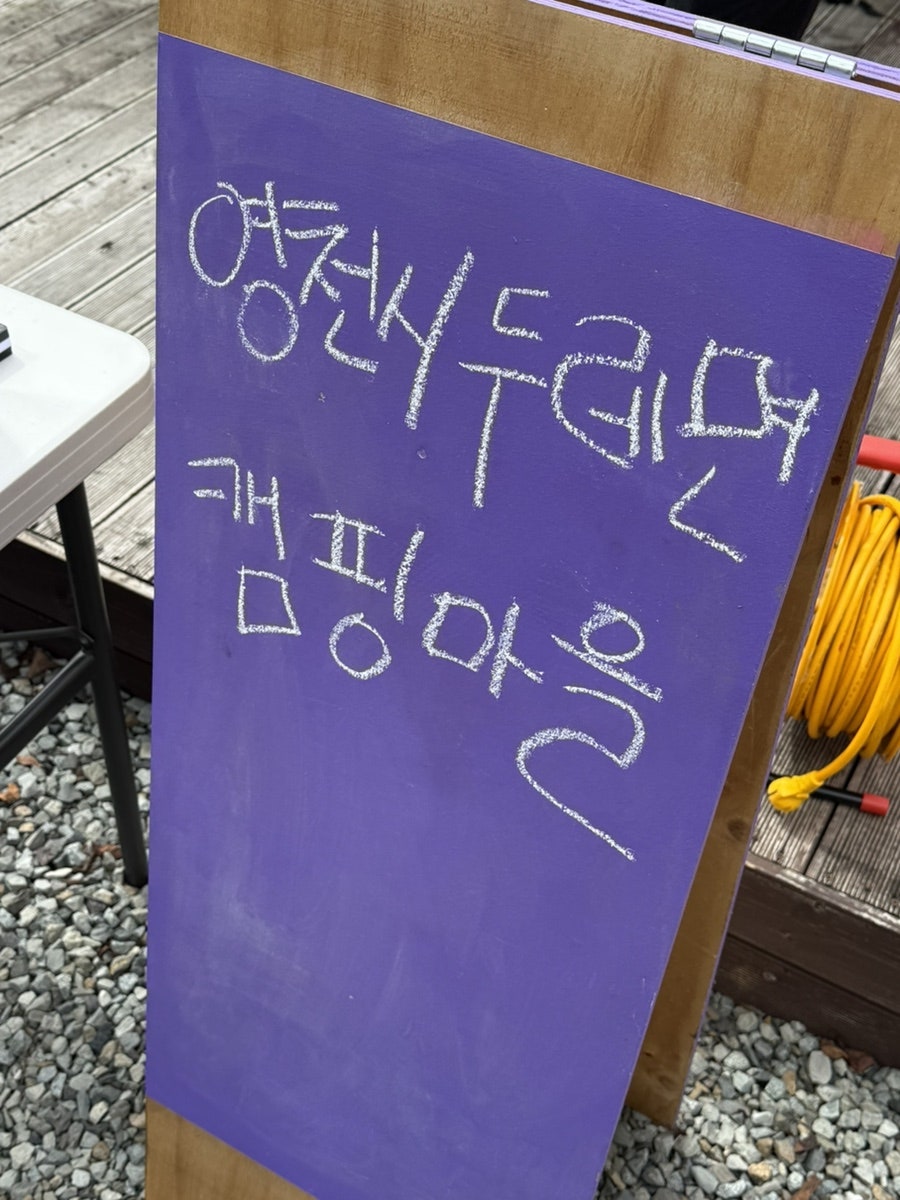 영천시 두레면
캠핑마을